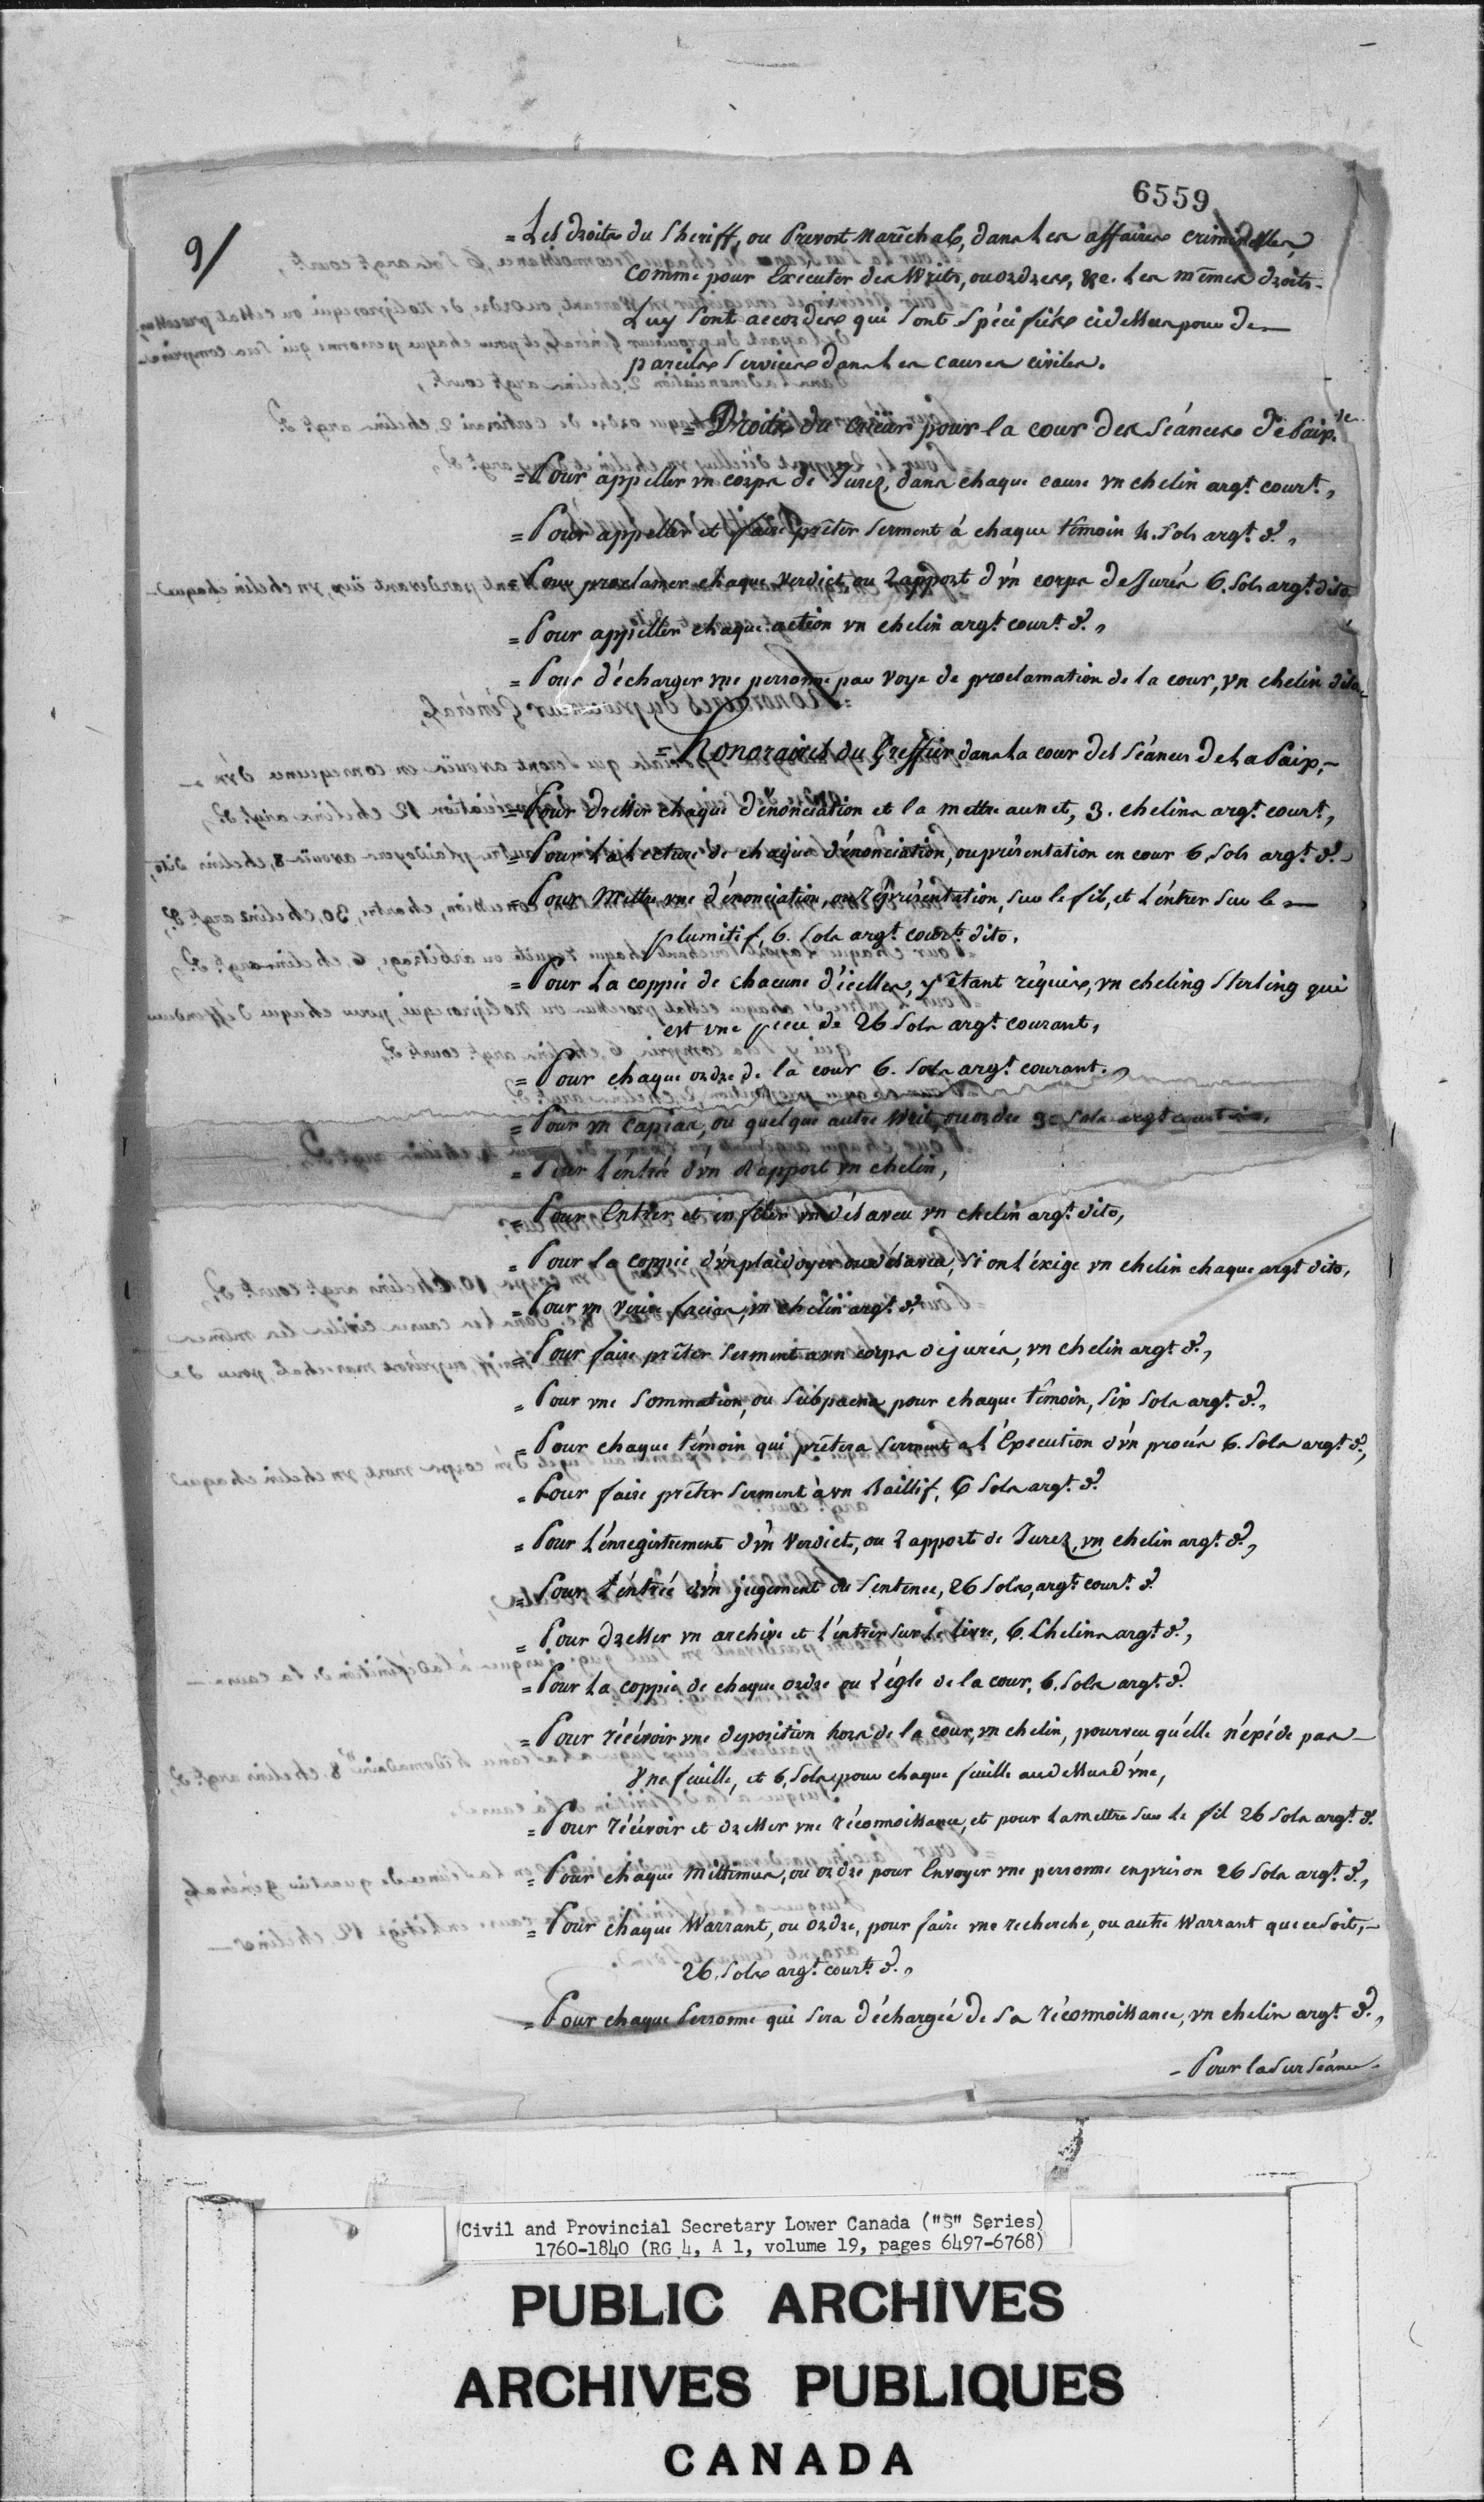 6559
9/
= Les droits du Sheriff, ou Prevost Maréchal, dans les affaires criminelles,
comme pour Exécuter des Writs, ou ordres, &c. les mêmes droits -
Luy sont accordés qui sont spécifiés cidessus pour de
pareils services dans les causes civiles.
= Droits du crieur pour la cour des Séances de Paix.
= Pour appeller vn corps de Jurez, dans chaque cause vn chelin argt. court.,
= Pour appeller et faire prêter serment à chaque témoin 4. sols argt. do.,
= Pour proclamer chaque verdict, ou rapport d'vn corps de Jurés 6. sols argt. dito
= Pour appeller chaque action vn chelin argt. court. do.,
= Pour décharger vne personne par voye de proclamation de la cour, vn chelin dito
= Honoraires du Greffier dans la cour des Séances de la Paix,
= Pour dresser chaque dénonciation et la mettre au net, 3. chelins argt. court.,
= Pour la Lecture de chaque dénonciation, ou présentation en cour 6. sols argt. do.
= Pour Mettre vne dénonciation, ou réprésentation, sur le fil, et l'éntrer sur le
plumitif, 6. sols argt. court. dito.
= Pour La coppie de chacune d'icelles, y étant réquise, vn cheling Sterling qui
est vne piece de 26 sols argt. courant,
= Pour chaque ordre de la cour 6. sols argt. courant.,
= Pour vn Capias, ou quelque autre Writ, ou ordre 30 sols argt court
= Pour L'éntrée d'vn Rapport vn chelin,
= Pour Entrer et enfiler vn désaveu vn chelin argt. dito,
= Pour la coppie d'vn plaidoyer ou désaveu, si on l'éxige vn chelin chaque argt dito,
= Pour vn Venire facias, vn chelin argt. do.
= Pour faire prêter serment a vn corps de jurés, vn chelin argt. do.,
= Pour vne sommation, ou subpaena pour chaque témoin, six sols argt. do.,
= Pour chaque témoin qui prêtera serment a l'Execution d'vn procés 6. sols argt. do.,
= Pour faire prêter serment à vn Baillif, 6 sols argt. do.
= Pour l'énregistrement d'vn Verdict, ou rapport de Jurez, vn chelin argt. do.,
= Pour l'éntrée d'vn jugement ou sentence, 26 sols, argt. court. do.
= Pour dresser vn archive et l'éntrer sur le livre, 6. Chelins argt. do.,
= Pour La coppie de chaque ordre ou régle de la cour, 6. sols argt. do.
= Pour récévoir vne deposition hors de la cour, vn chelin, pourveu qu'elle n'éxéde pas
vne feuille, et 6. sols pour chaque feuille audessus d'vne,
= Pour récévoir et dresser vne réconnoissance, et pour la mettre sur le fil 26 sols argt. do.
= Pour chaque Mittimus, ou ordre pour Envoyer vne personne en prison 26 sols argt. do.,
= Pour chaque Warrant, ou ordre, pour faire vne recherche, ou autre Warrant que ce soit,
26. sols argt. court. do.,
= Pour chaque Personne qui sera déchargée de sa réconnoissance, vn chelin argt. do.,
- Pour la Surséance -
Civil and Provincial Secretary Lower Canada ("S" Series)
1760-1840 (RG 4, A 1, volume 19, pages 6497-6768)
PUBLIC ARCHIVES
ARCHIVES PUBLIQUES
CANADA